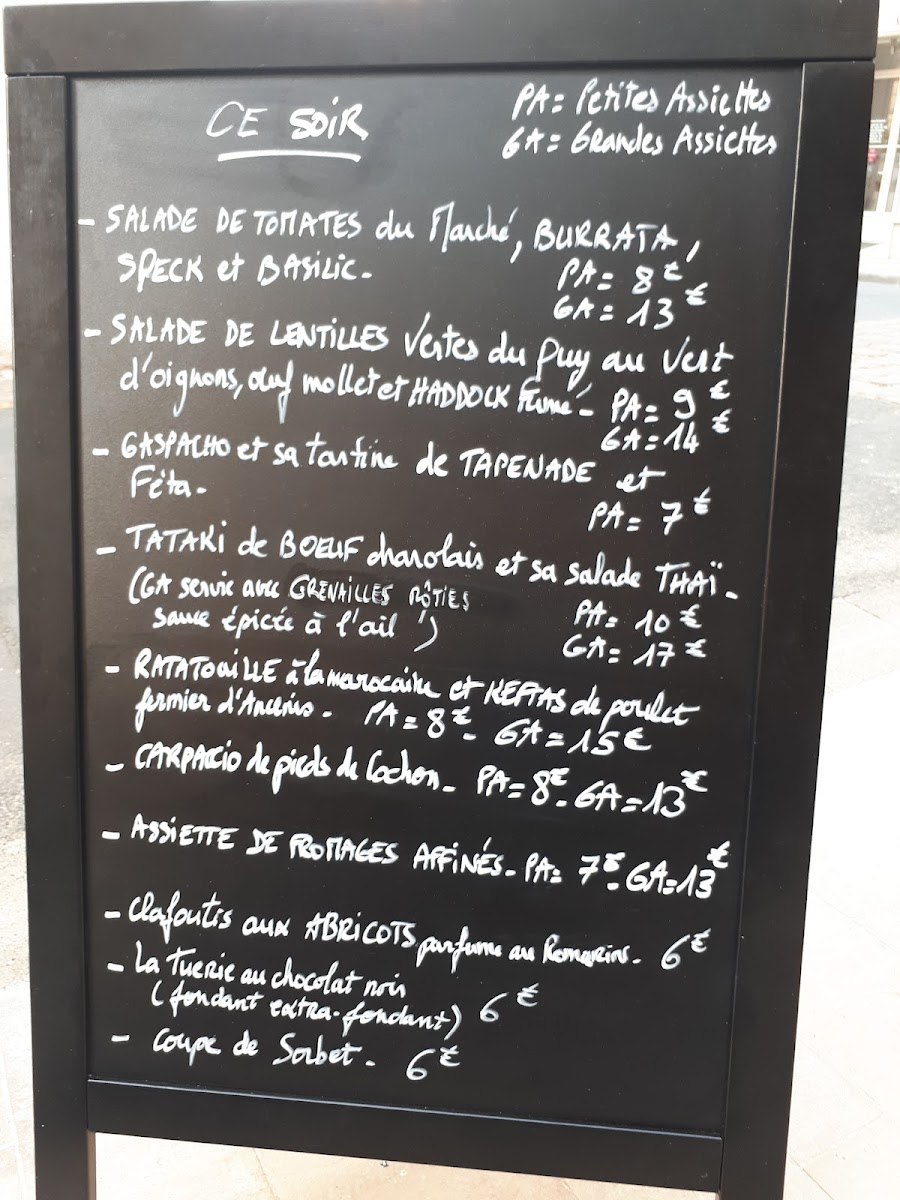 CE SOIR
PA = Petites Assiettes
GA = Grandes Assiettes
- SALADE DE TOMATES du Marché, BURRATA,
SPECK et BASILIC.
PA = 8€
GA = 13€
- SALADE DE LENTILLES Vertes du Puy au Vert
d'oignons, œuf mollet et HADDOCK Fumé - PA = 9€
GA = 14€
- GASPACHO et sa tartine de TAPENADE et
Féta.
PA = 7€
- TATAKI de BOEUF charolais et sa salade THAÏ.
(GA servie avec GRENAILLES RÔTIES
sauce épicée à l'ail)
PA = 10€
GA = 17€
- RATATOUILLE à la marocaine et KEFTAS de poulet
fermier d'Ancenis. PA = 8€ - GA = 15€
- CARPACCIO de pieds de Cochon - PA = 8€ - GA = 13€
- ASSIETTE DE FROMAGES AFFINÉS - PA = 7€ - GA = 13€
- Clafoutis aux ABRICOTS parfumé au Romarins. 6€
- La Tuerie au chocolat noir
(fondant extra-fondant) 6€
- Coupe de Sorbet. 6€